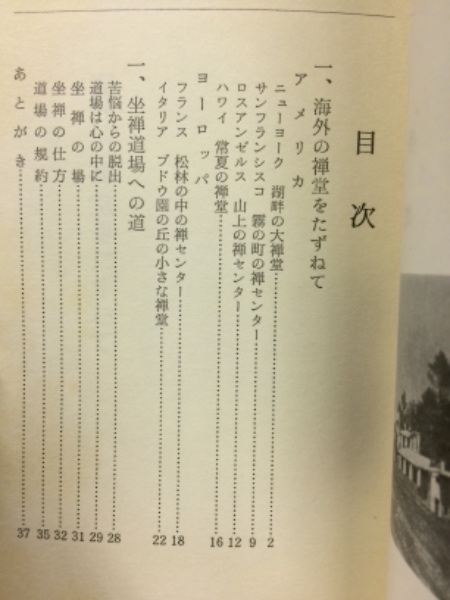 目次
一、海外の禅堂をたずねて
アメリカ
ニューヨーク 湖畔の大禅堂……2
サンフランシスコ 霧の町の禅センター……9
ロスアンゼルス 山上の禅センター……12
ハワイ 常夏の禅堂……16
ヨーロッパ
フランス 松林の中の禅センター……18
イタリア ブドウ園の丘の小さな禅堂……22
一、坐禅道場への道
苦悩からの脱出……28
道場は心の中に……29
坐禅の場……31
坐禅の仕方……32
道場の規約……35
あとがき……37